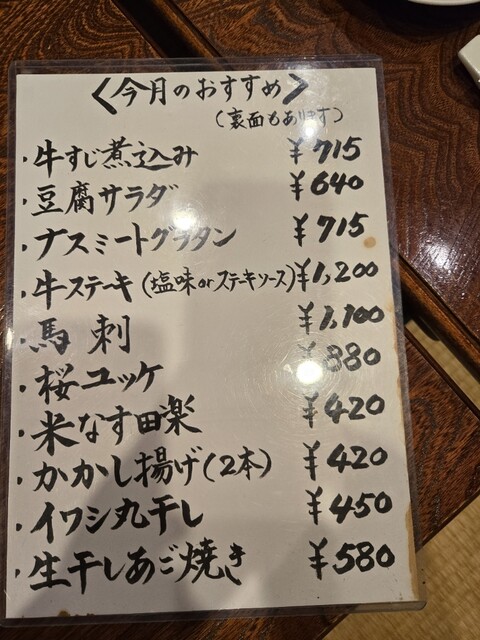 <今月のおすすめ>
(裏面もあります)
・牛すじ煮込み ¥715
・豆腐サラダ ¥640
・ナスミートグラタン ¥715
・牛ステーキ(塩味orステーキソース) ¥1,200
・馬刺 ¥1,100
・桜ユッケ ¥880
・米なす田楽 ¥420
・かかし揚げ(2本) ¥420
・イワシ丸干し ¥450
・生干しあご焼き ¥580